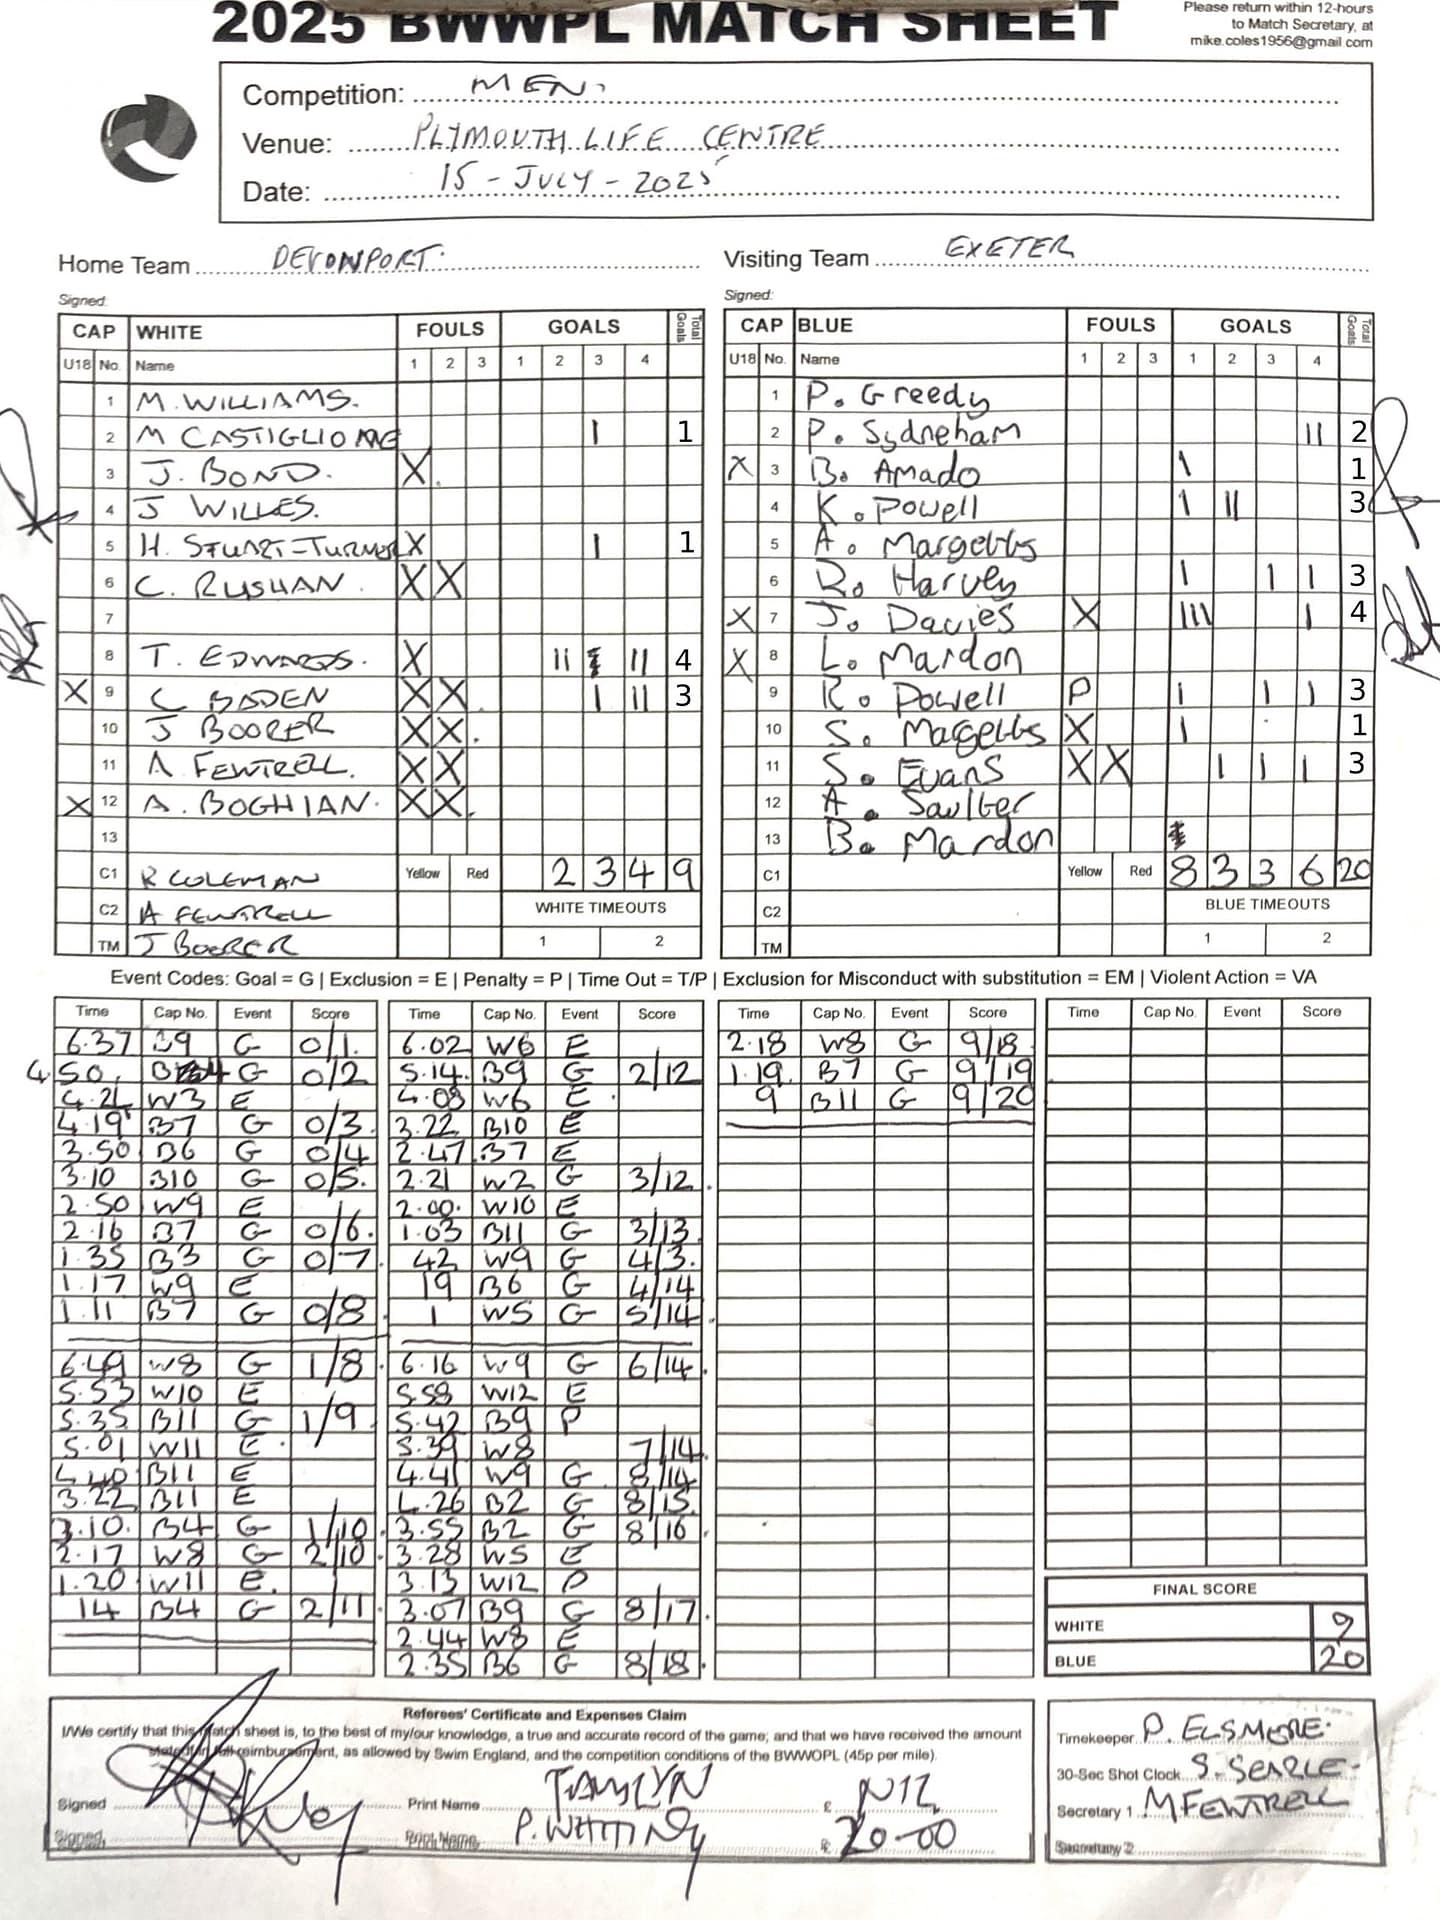 2025 BWWPL MATCH SHEET
Please return within 12-hours
to Match Secretary, at
mike.coles1956@gmail.com
Competition: MEN.
Venue: PLYMOUTH LIFE CENTRE
Date: 15 - JULY - 2025
Home Team DEVONPORT.
Visiting Team EXETER
Signed:
Signed:
CAP WHITE FOULS GOALS Total Goals
U18 No. Name 1 2 3 1 2 3 4
1 M. WILLIAMS.
2 M CASTIGLIONE I 1
3 J. BOND. X
4 J WILLES.
5 H. STUART-TURNER X I 1
6 C. RUSHAN. X X
7
8 T. EDWARDS. X II I II 4
X 9 C BADEN X X I II 3
10 J BOORER X X
11 A FEWTRELL. X X
X 12 A. BOGHIAN. X X
13
C1 R COLEMAN Yellow Red 2 3 4 9
C2 A FEWTRELL WHITE TIMEOUTS
TM J BOORER 1 2
CAP BLUE FOULS GOALS Total Goals
U18 No. Name 1 2 3 1 2 3 4
1 P. Greedy
2 P. Sydneham II 2
X 3 B. Amado I 1
4 K. Powell I II 3
5 A. Margetts
6 R. Harvey I I I 3
X 7 J. Davies X III I 4
X 8 L. Mardon
9 R. Powell P I I I 3
10 S. Margetts X I 1
11 S. Evans X X I I I 3
12 A. Saulter
13 B. Mardon
C1 Yellow Red 8 3 3 6 20
C2 BLUE TIMEOUTS
TM 1 2
Event Codes: Goal = G | Exclusion = E | Penalty = P | Time Out = T/P | Exclusion for Misconduct with substitution = EM | Violent Action = VA
Time Cap No. Event Score
6.37 B9 G 0/1.
4.50. B4 G 0/2
4.24 W3 E
4.19 B7 G 0/3.
3.50 B6 G 0/4
3.10 B10 G 0/5.
2.50 W9 E
2.16 B7 G 0/6.
1.35 B3 G 0/7.
1.17 W9 E
1.11 B7 G 0/8.
6.49 W8 G 1/8.
5.53 W10 E
5.35 B11 G 1/9
5.01 W11 E.
4.40 B11 E
3.22 B11 E
3.10. B4 G 1/10.
2.17 W8 G 2/10.
1.20 W11 E.
14 B4 G 2/11.
Time Cap No. Event Score
6.02 W6 E
5.14. B9 G 2/12
4.08 W6 E.
3.22 B10 E
2.47 B7 E
2.21 W2 G 3/12.
2.00. W10 E
1.03 B11 G 3/13
42 W9 G 4/3.
19 B6 G 4/14
1 W5 G 5/14.
6.16 W9 G 6/14.
5.58 W12 E
5.42 B9 P
5.39 W8 7/14.
4.41 W9 G 8/14
4.26 B2 G 8/15.
3.55 B2 G 8/16
3.28 W5 E
3.13 W12 P
3.07 B9 G 8/17.
2.44 W8 E
2.35 B6 G 8/18.
Time Cap No. Event Score
2.18 W8 G 9/18
1.19. B7 G 9/19
9 B11 G 9/20
Time Cap No. Event Score
FINAL SCORE
WHITE 9
BLUE 20
Referees' Certificate and Expenses Claim
I/We certify that this match sheet is, to the best of my/our knowledge, a true and accurate record of the game; and that we have received the amount
stated in full reimbursement, as allowed by Swim England, and the competition conditions of the BWWOPL (45p per mile).
Signed Print Name TAMLYN £ NIL
Signed Print Name P. WHITING £ 20-00
Timekeeper P. ELSMORE.
30-Sec Shot Clock S. SEARLE.
Secretary 1 M FEWTRELL
Secretary 2